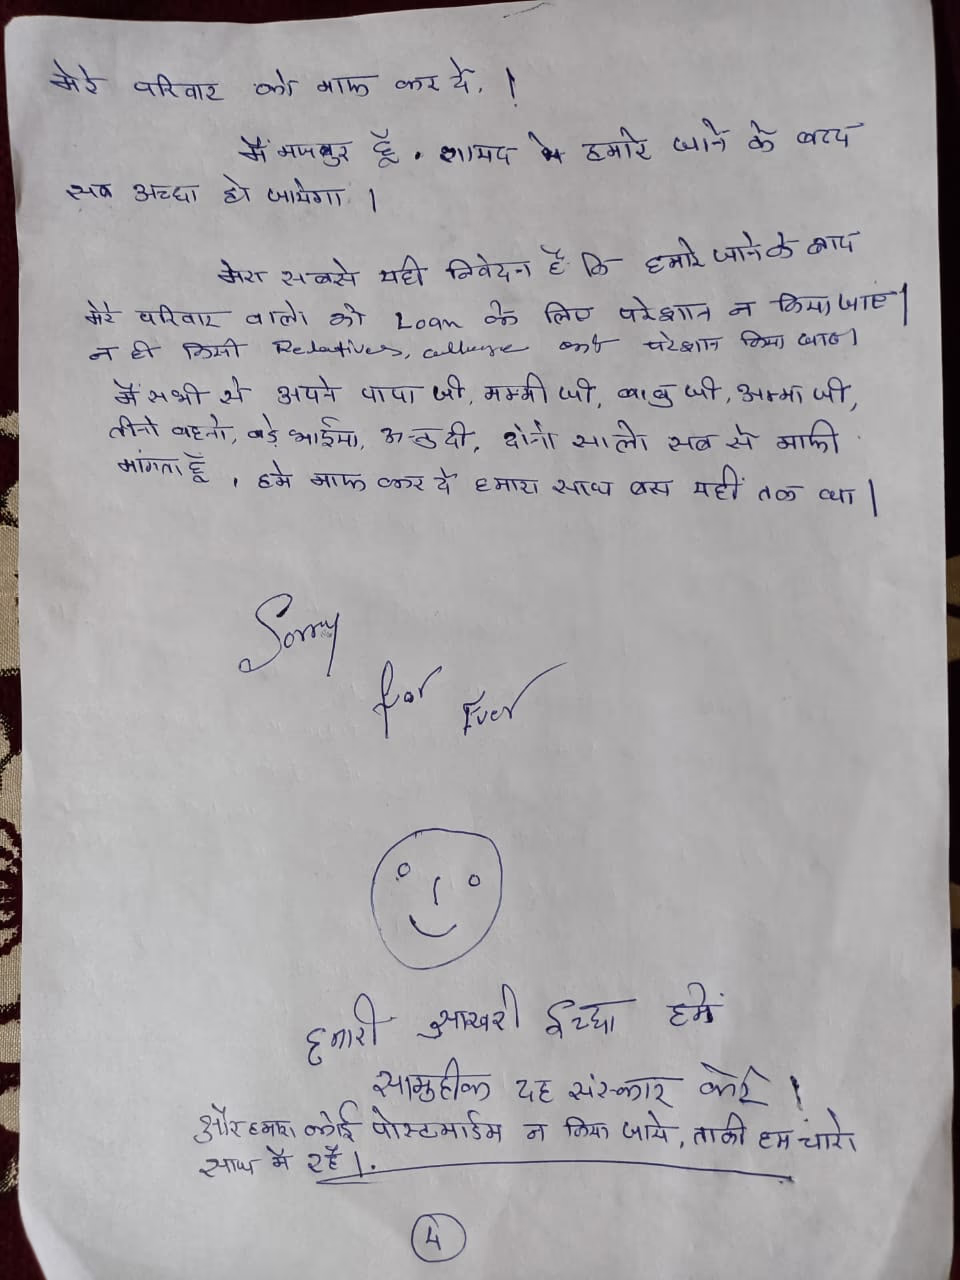 मेरे परिवार को माफ कर दें, !
मैं मजबुर हूँ . शायद हमारे जाने के बाद
सब अच्छा हो जायेगा |
मेरा सबसे यही निवेदन है कि हमारे जाने के बाद
मेरे परिवार वालो को Loan के लिए परेशान न किया जाए |
न ही किसी Relatives, को परेशान किया जाए |
मैं सभी से अपने पापा जी, मम्मी जी, बाबु जी, अम्मा जी,
तीनो बहनो, बड़े दोनो सालो सब से माफी
मांगता हूँ , हमे माफ कर दें हमारा साथ बस यहीं तक था |
Sorry
for Ever
हमारी आखरी ईच्छा हमें
सामुहीक दाह संस्कार करें !
और हमारा कोई पोस्टमार्डम न किया जाये, ताकी हम चारो
साथ में रहें |.
4